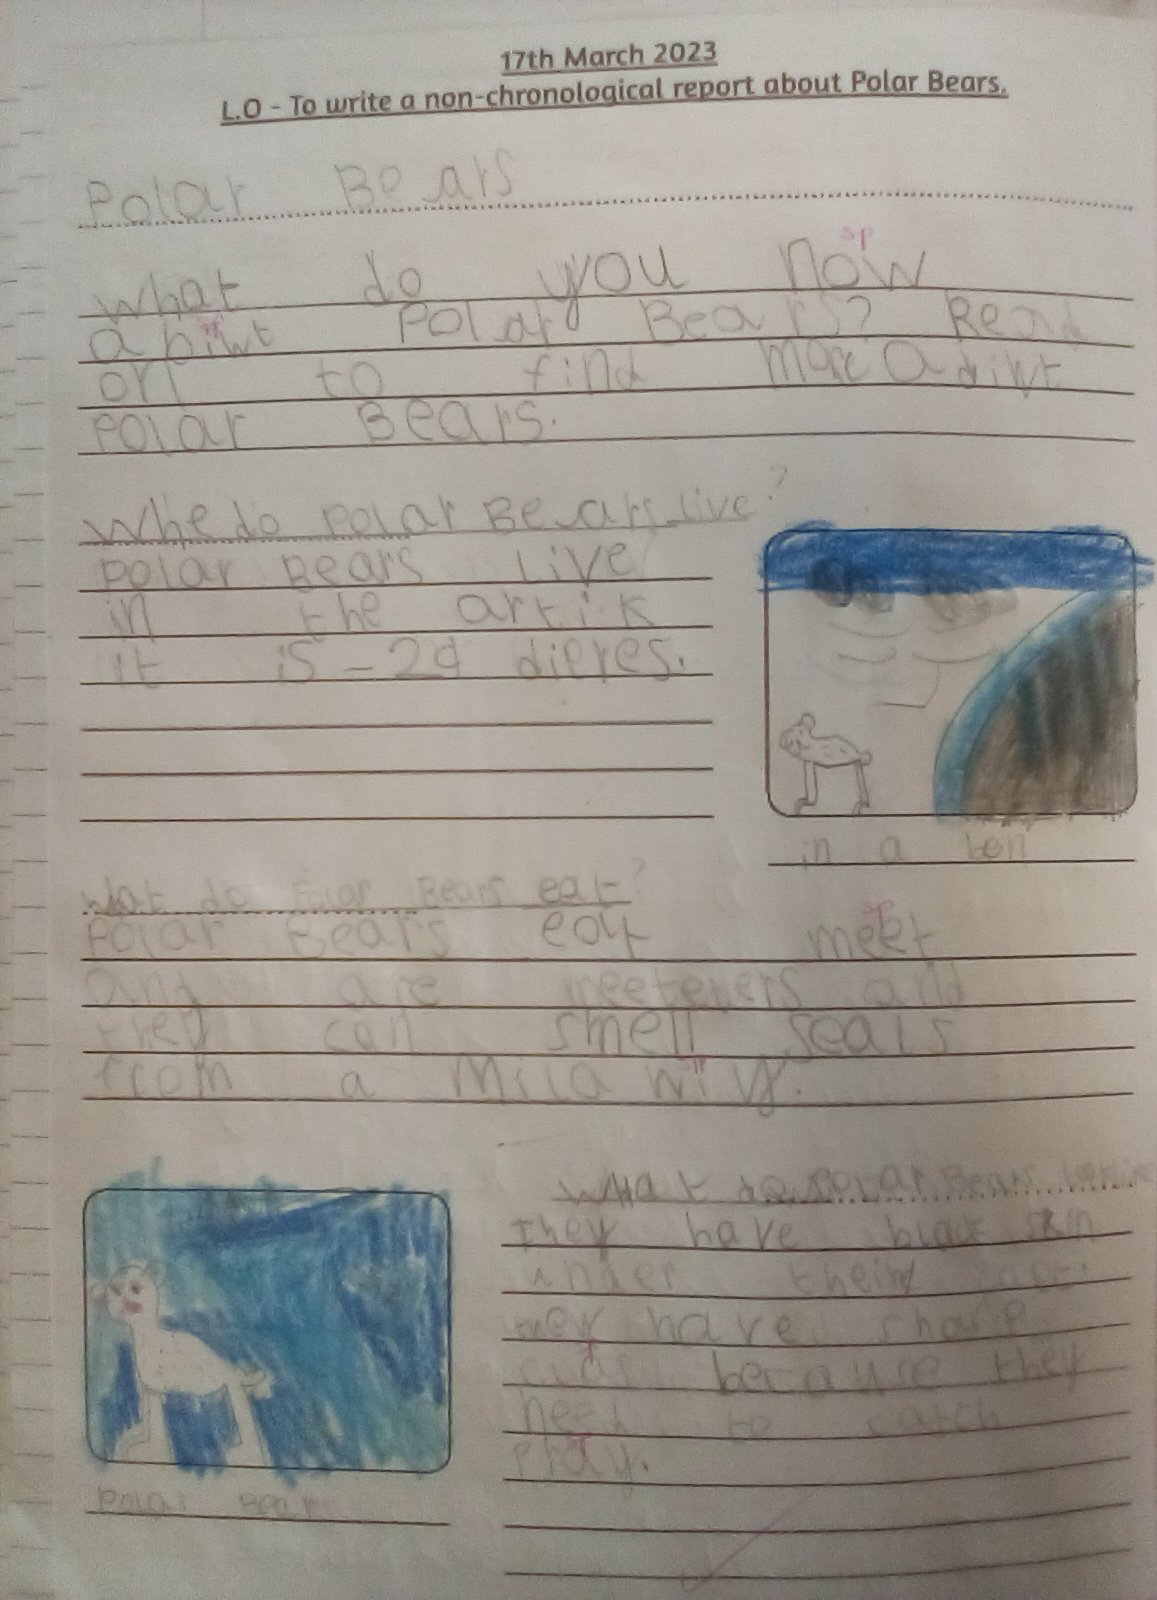 17th March 2023
L.O - To write a non-chronological report about Polar Bears.
Polar Bears
sp
What do you now
abiwt Polar Bears? Read
on to find more adiwt
Polar Bears.
Whe do Polar Bears live?
Polar Bears Live
in the artik
it is -29 diyres.
in a ben
What do Polar Bears eat?
sp
Polar Bears eat meet
and are meeteters and
they can smell seals
from a Mila wiy.
What do Polar Bears
they have black skin
under their
they have sharp
clas because they
need to catch
Phay.
Polar Bears